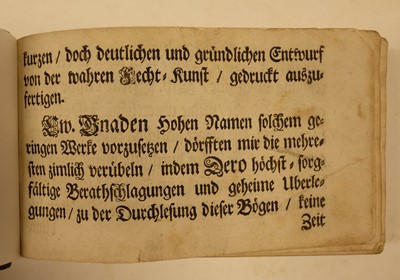 kurzen / doch deutlichen und gründlichen Entwurf
von der wahren Fecht-Kunst / gedruckt auszu-
fertigen.
Ew. Gnaden Hohen Namen solchem ge-
ringen Werke vorzusetzen / dörfften mir die mehre-
sten zimlich verübeln / indem Dero höchst-sorg-
fältige Berathschlagungen und geheime Uberle-
gungen / zu der Durchlesung dieser Bögen / keine
Zeit